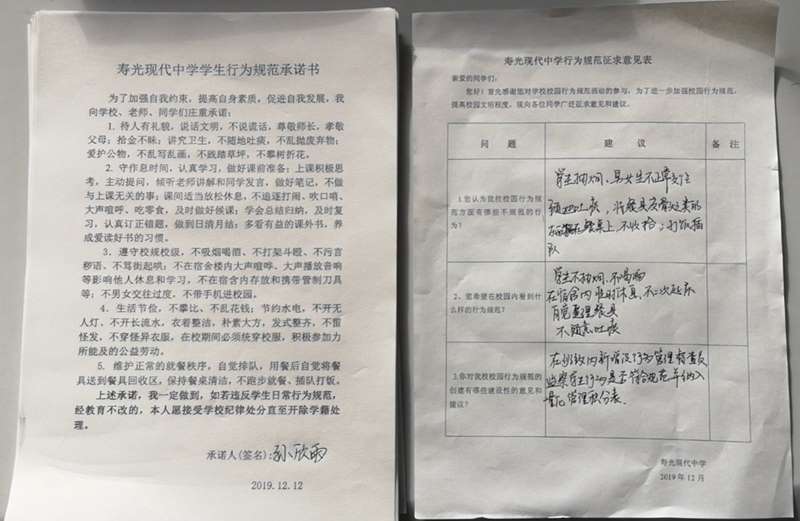 寿光现代中学学生行为规范承诺书
为了加强自我约束，提高自身素质，促进自我发展，我
向学校、老师、同学们庄重承诺：
1. 待人有礼貌，说话文明，不说谎话，尊敬师长，孝敬
父母；拾金不昧；讲究卫生，不随地吐痰，不乱抛废弃物；
爱护公物，不乱写乱画，不践踏草坪，不攀树折花。
2. 守作息时间，认真学习，做好课前准备；上课积极思
考，主动提问，倾听老师讲解和同学发言，做好笔记，不做
与上课无关的事；课间适当放松休息，不追逐打闹、吹口哨、
大声喧哗、吃零食，及时做好候课；学会总结归纳，及时复
习，认真订正错题，做到日清月结；多看有益的课外书，养
成爱读好书的习惯。
3. 遵守校规校级，不吸烟喝酒、不打架斗殴、不污言
秽语、不骂街起哄；不在宿舍楼内大声喧哗、大声播放音响
等影响他人休息和学习，不在宿舍内存放和携带管制刀具
等；不男女交往过度，不带手机进校园。
4. 生活节俭，不攀比、不乱花钱；节约水电，不开无
人灯、不开长流水，衣着整洁，朴素大方，发式整齐，不留
怪发，不穿怪异衣服，在校期间必须统穿校服，积极参加力
所能及的公益劳动。
5. 维护正常的就餐秩序，自觉排队，用餐后自觉将餐
具送到餐具回收区，保持餐桌清洁，不跑步就餐、插队打饭。
上述承诺，我一定做到，如若违反学生日常行为规范，
经教育不改的，本人愿接受学校纪律处分直至开除学籍处
理。
承诺人(签名)：孙欣雨
2019.12.12
寿光现代中学行为规范征求意见表
亲爱的同学们：
您好！首先感谢您对学校校园行为规范活动的参与，为了进一步加强校园行为规范，
提高校园文明程度，现向各位同学广泛征求意见和建议。
问 题 建 议 备 注
1.您认为我校校园行为规
范方面有哪些不规范的行
为？
学生抽烟、男女生不正常交往
随地吐痰，将餐具及骨头类的
在餐桌上，不收拾；打饭插
队
2、您希望在校园内看到什
么样的行为规范？
学生不抽烟、不喝酒
在宿舍内准时休息、不二次起床
自觉整理餐具
不随意吐痰
3.你对我校校园行为规范的
创建有哪些建设性的意见和
建议？
在班级内新增设行为管理督查员
监察学生行为是否符合规范并纳入
量化管理积分表.
寿光现代中学
2019 年 12 月